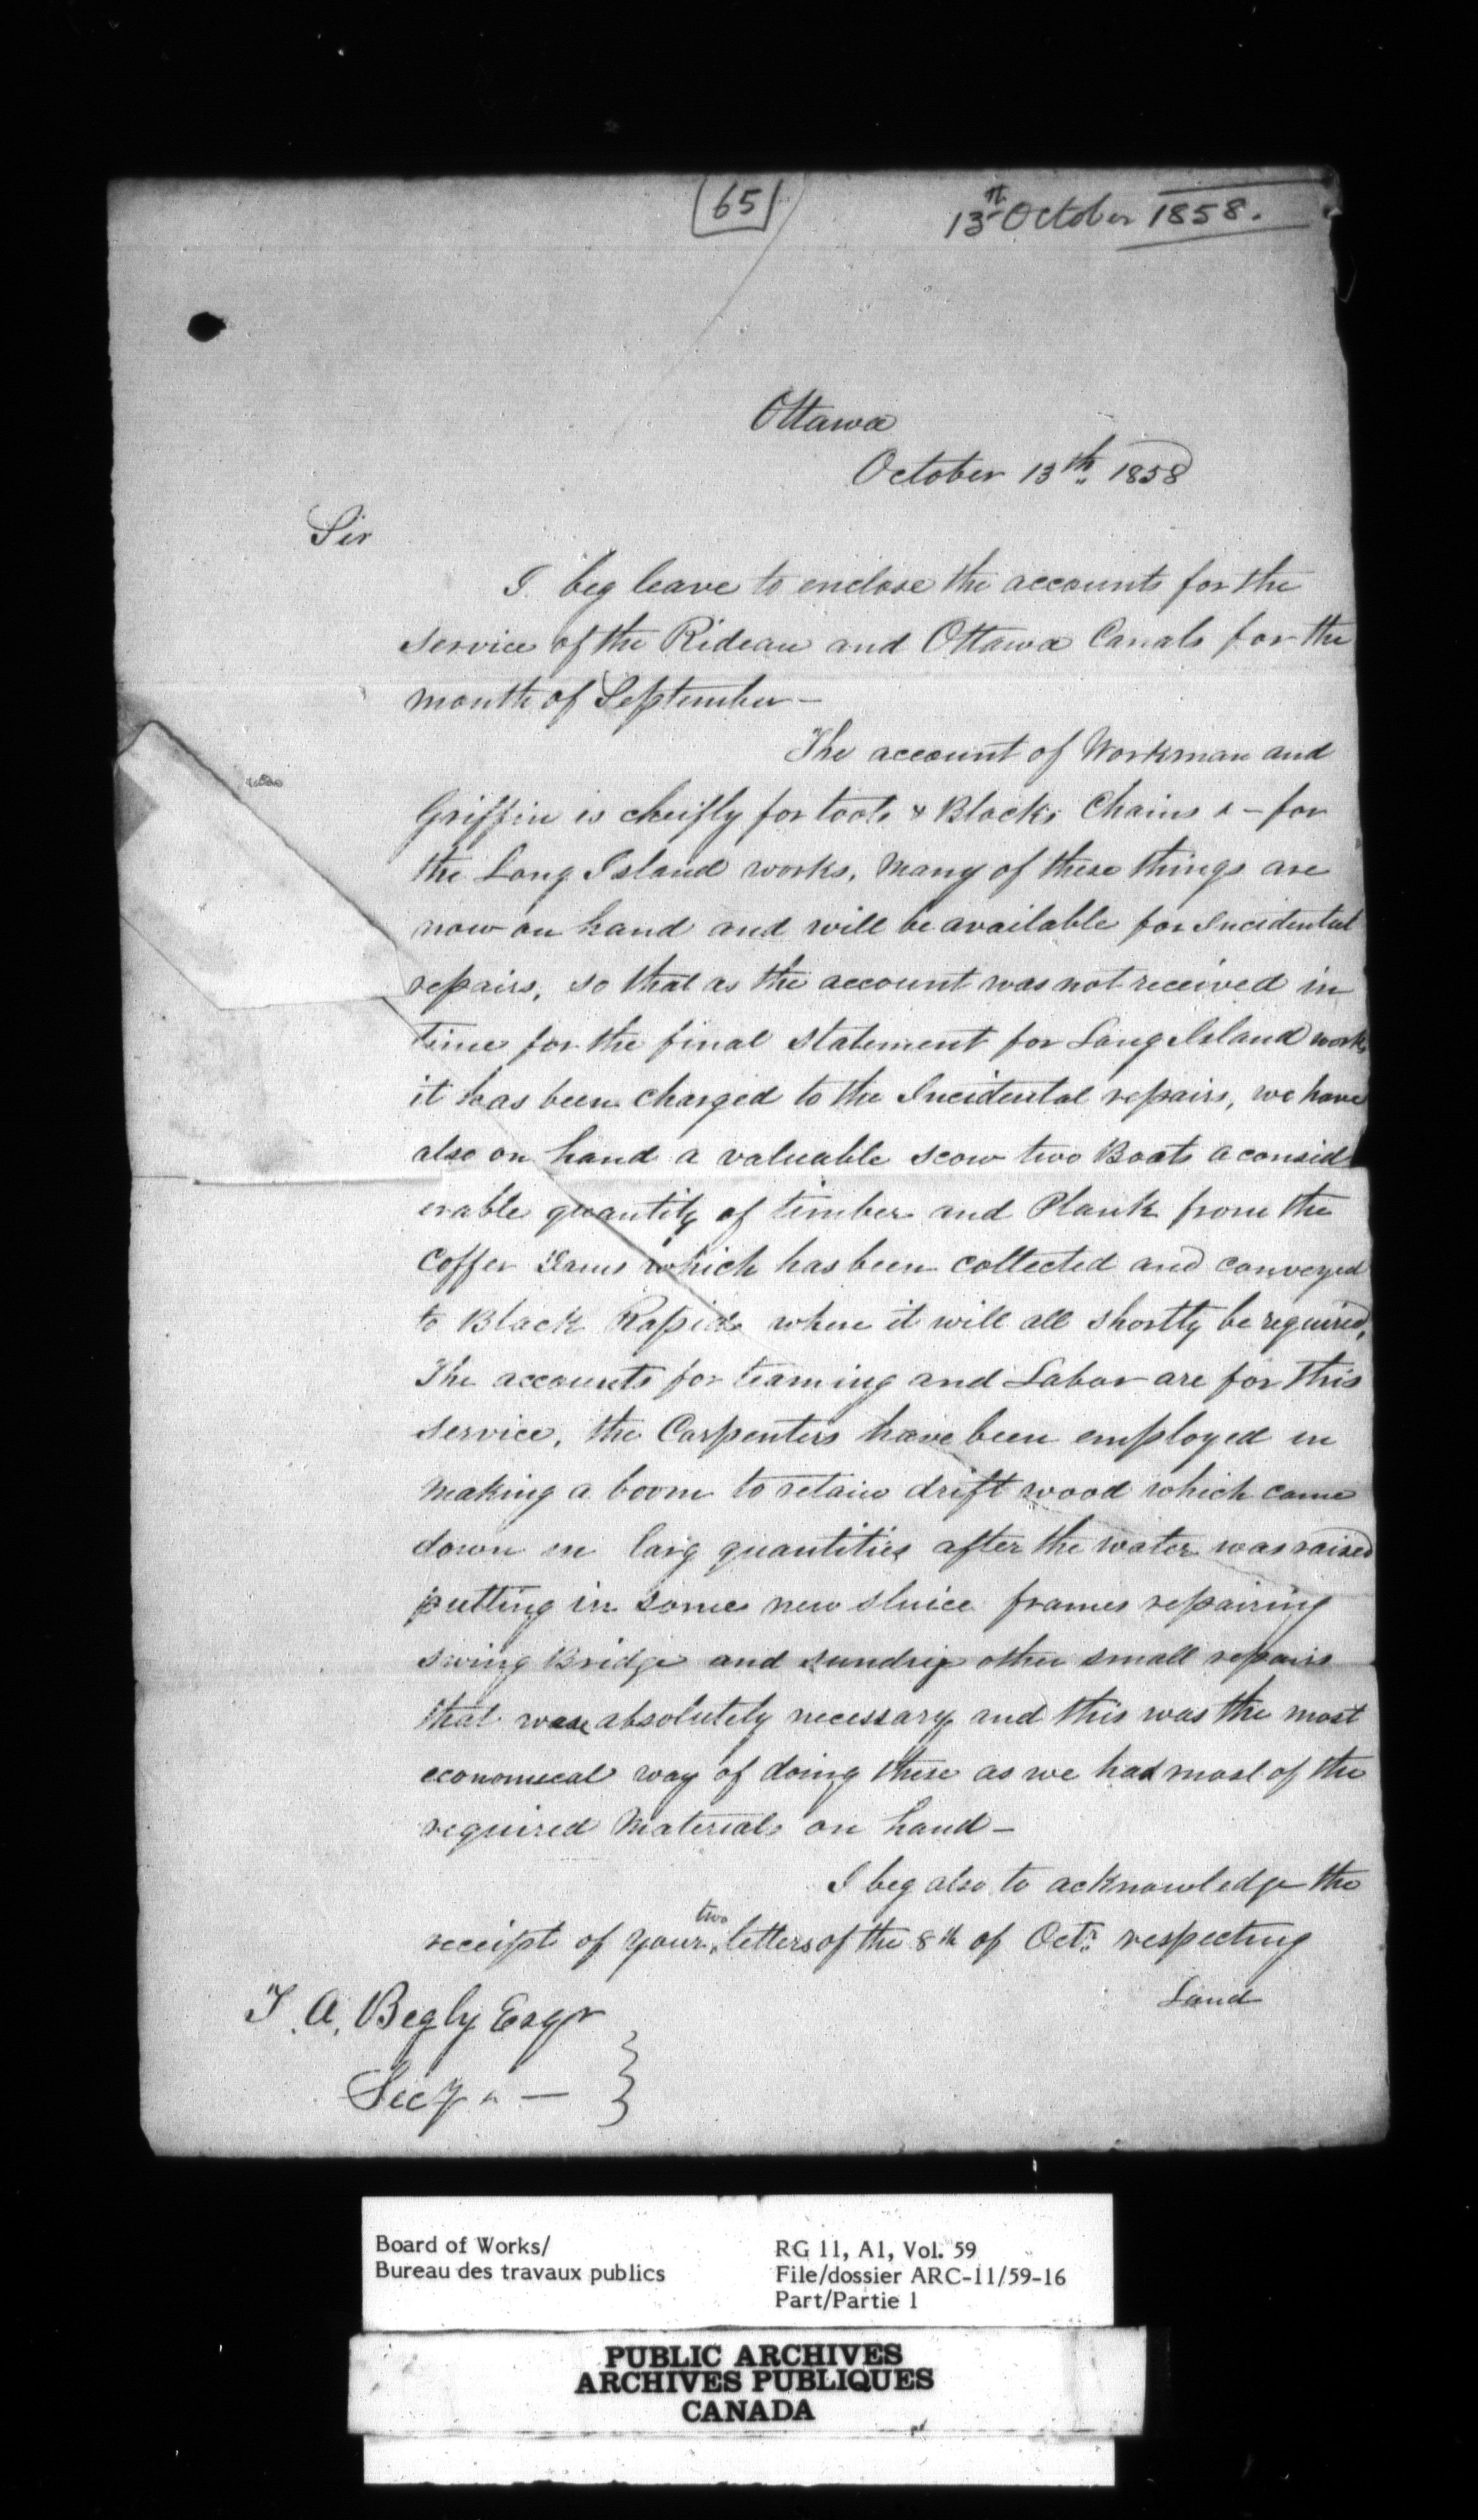 65
13th October 1858.
Ottawa
October 13th 1858
Sir
I beg leave to enclose the accounts for the
service of the Rideau and Ottawa Canals for the
month of September –
The account of Workman and
Griffin is cheifly for tools & Blocks Chains & – for
the Long Island works, Many of these things are
now on hand and will be available for Incidental
repairs, so that as the account was not received in
time for the final statement for Long Island works
it has been charged to the Incidental repairs, we have
also on hand a valuable scow two Boats a consid
erable quantity of timber and Plank from the
Coffer Dams which has been collected and conveyed
to Black Rapids where it will all shortly be required,
The accounts for teaming and Labor are for this
service, the Carpenters have been employed in
making a boom to retain drift wood which came
down in larg quantities after the water was raised
putting in some new sluice frames repairing
swing Bridge and sundry other small repairs
that were absolutely necessary and this was the most
economical way of doing these as we had most of the
required Materials on hand –
I beg also to acknowledge the
receipt of your two letters of the 8th of Octr. respecting
Land
T. A. Begly Esqr
Secy " —
Board of Works/
Bureau des travaux publics
RG 11, A1, Vol. 59
File/dossier ARC-11/59-16
Part/Partie 1
PUBLIC ARCHIVES
ARCHIVES PUBLIQUES
CANADA